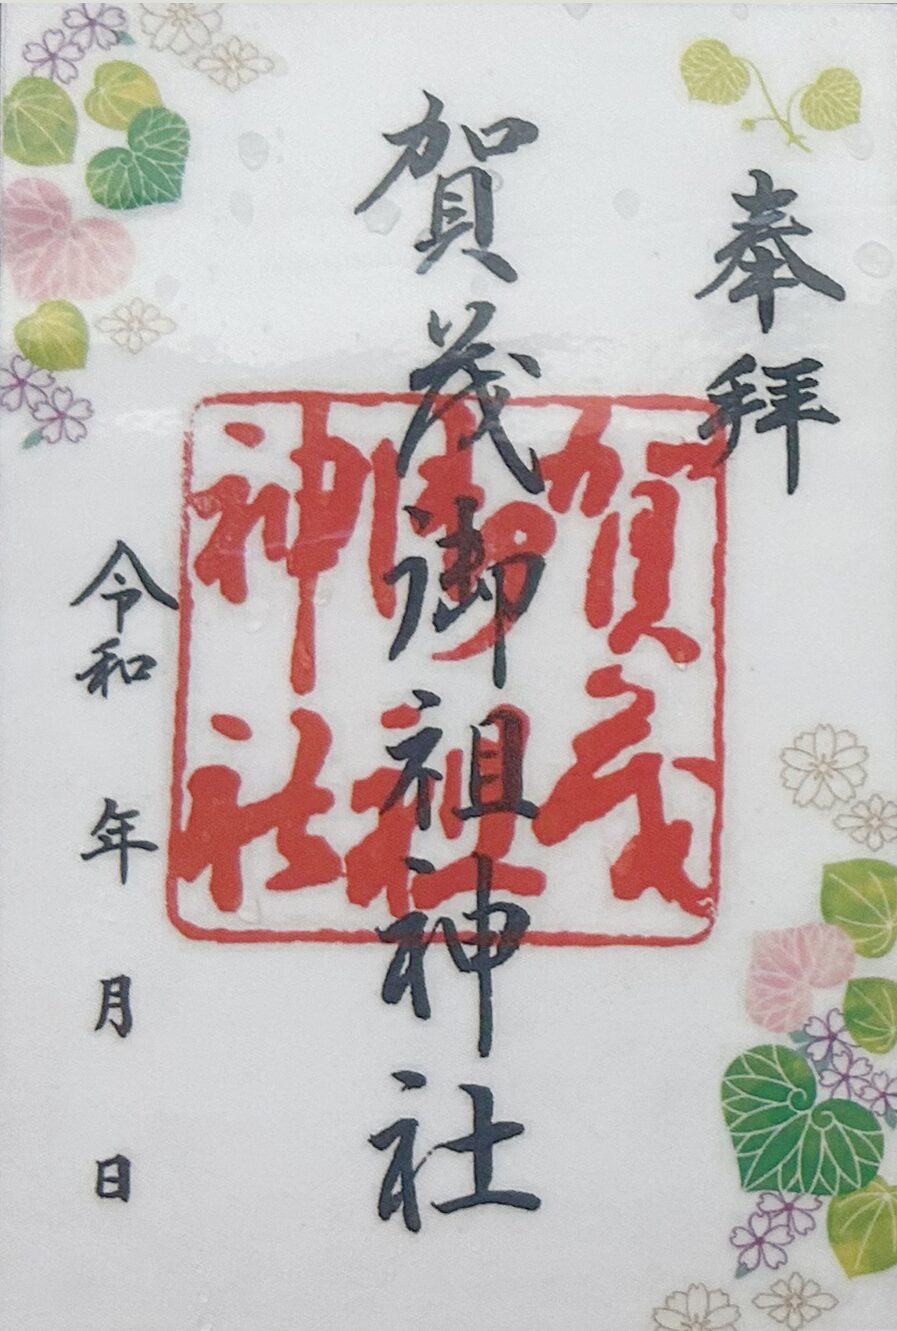 奉拝
賀茂御祖神社
賀茂
御祖
神社
令和 年 月 日